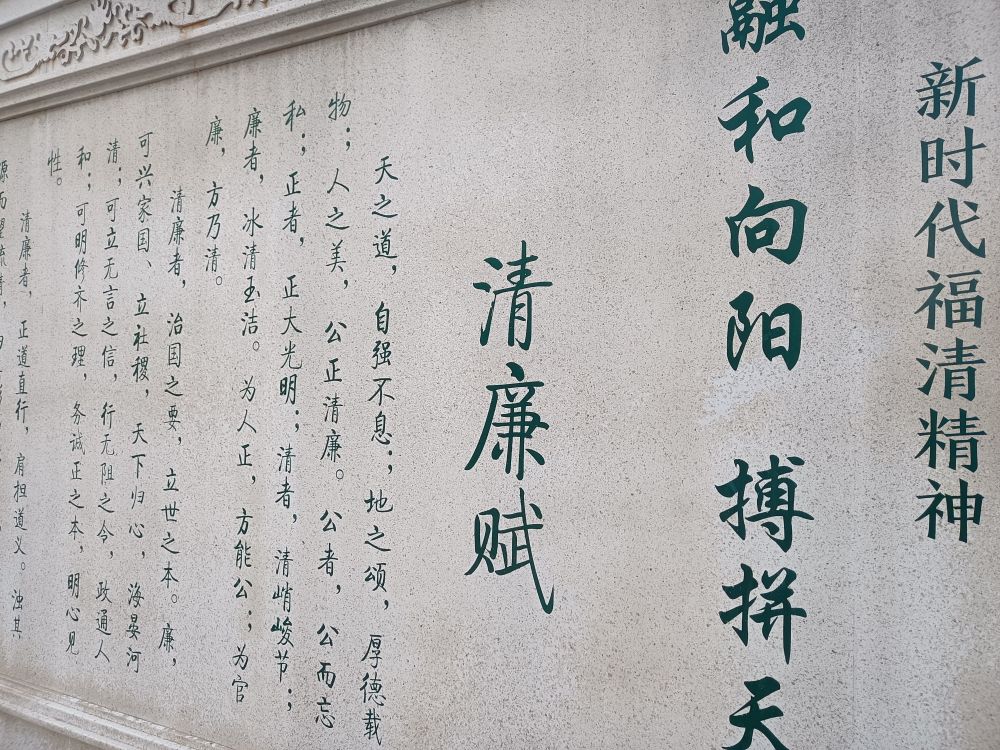 新时代福清精神
融和向阳 搏拼天
清廉赋
天之道，自强不息；地之颂，厚德载
物；人之美，公正清廉。公者，公而忘
私；正者，正大光明；清者，清峭峻节；
廉者，冰清玉洁。为人正，方能公；为官
廉，方乃清。
清廉者，治国之要，立世之本。廉，
可兴家国、立社稷，天下归心，海晏河
清；可立无言之信，行无阻之令，政通人
和；可明修齐之理，务诚正之本，明心见
性。
清廉者，正道直行，肩担道义。浊其
源而望流清，